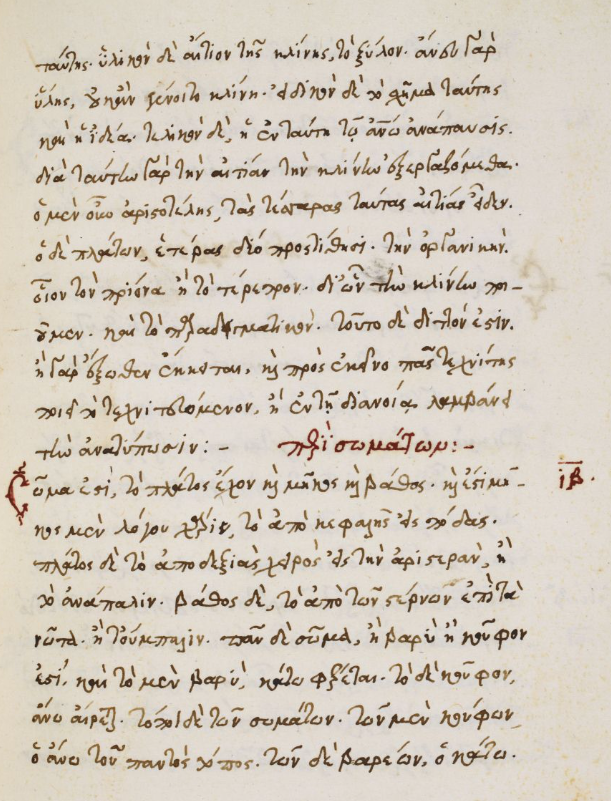 ταύτης. ὑλικὸν δὲ αἴτιον τῆς κλίνης, τὸ ξύλον. ἄνευ γὰρ
ὕλης, οὐκ ἂν γένοιτο κλίνη. εἰδικὸν δὲ τὸ σχῆμα ταύτης
καὶ ἡ ἰδέα. τελικὸν δὲ, ἡ ἐν ταύτη τῶ ἀνω ἀνάπαυσις.
διὰ ταύτην γὰρ τὴν αἰτίαν τὴν κλίνην ἐξεργαζόμεθα.
ὁ μὲν οὖν ἀριστοτέλης, τὰς τέσσαρας ταύτας αἰτίας οἶδεν.
ὁ δὲ πλάτων, ἑτέρας δύο προστίθησι. τὴν ὀργανικὴν.
οἷον τὸν πρίονα ἢ τὸ τέρετρον. δι' ὧν τὴν κλίνην ποι-
οῦμεν. καὶ τὸ παραδειγματικὸν. τοῦτο δὲ διπλόν ἐστιν.
ἢ γὰρ ἔξωθεν ἔγκειται, καὶ πρὸς ἐκεῖνο πᾶς τεχνίτης
ποιεῖ τὸ τεχνιτευόμενον, ἢ ἐν τῆ διανοία λαμβάνει
τὴν ἀνατύπωσιν :- περὶ σωμάτων :-
Σῶμα ἐστὶ, τὸ πλάτος ἔχον καὶ μῆκος καὶ βάθος. καὶ ἐστὶ μῆ- ιβ.
κος μὲν λόγου χάριν, τὸ ἀπὸ κεφαλῆς εἰς πόδας.
πλάτος δὲ τὸ ἀπο δεξιᾶς χειρὸς εἰς τὴν ἀριστερὰν, ἢ
τὸ ἀνάπαλιν. βάθος δὲ, τὸ ἀπὸ τῶν στέρνων ἐπὶ τὰ
νῶτα. ἢ τοὔμπαλιν. πᾶν δὲ σῶμα, ἢ βαρὺ ἢ κοῦφον
ἐστί. καὶ τὸ μὲν βαρὺ, κάτω φέρεται. τὸ δὲ κοῦφον,
ἄνω αἴρεται. τόποι δὲ τῶν σωμάτων. τῶν μὲν κούφων
ὁ ἄνω τοῦ παντὸς τόπος. τῶν δὲ βαρέων, ὁ κάτω.